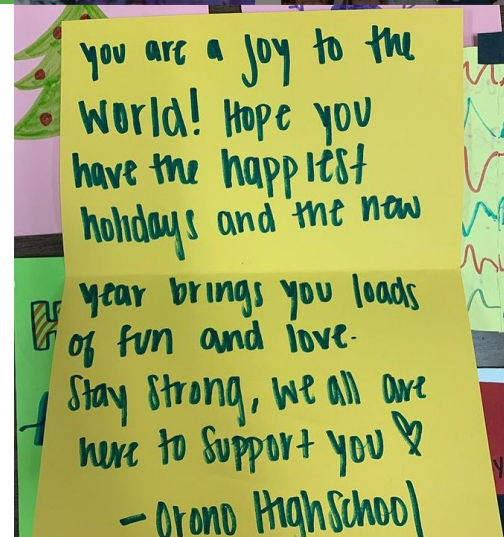 you are a joy to the
World! Hope you
have the happiest
holidays and the new
year brings you loads
of fun and love.
Stay Strong, we all are
here to Support you ♡
- Orono Highschool
H